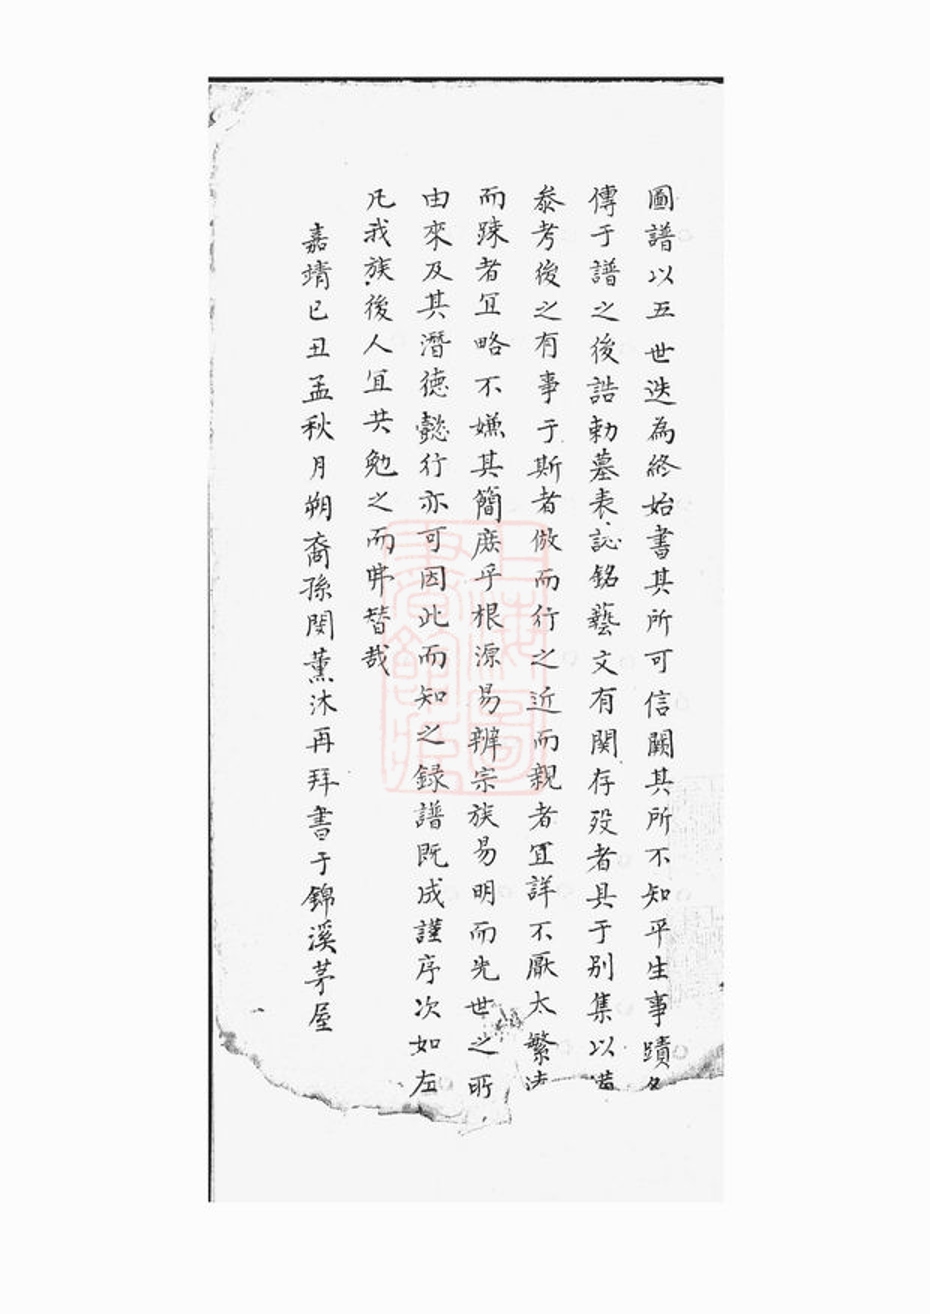 圖譜以五世迭為終始書其所可信闕其所不知平生事蹟
傳于譜之後誥勅墓表誌銘藝文有関存歿者具于別集以
叅考後之有事于斯者倣而行之近而親者冝詳不厭太繁
而踈者冝略不嫌其簡庶乎根源易辨宗族易明而先世之所
由來及其潛德懿行亦可因此而知之録譜既成謹序次如左
凡我族後人冝共勉之而弗替哉
嘉靖己丑孟秋月朔裔孫閔薰沐再拜書于錦溪茅屋
上海圖書館藏